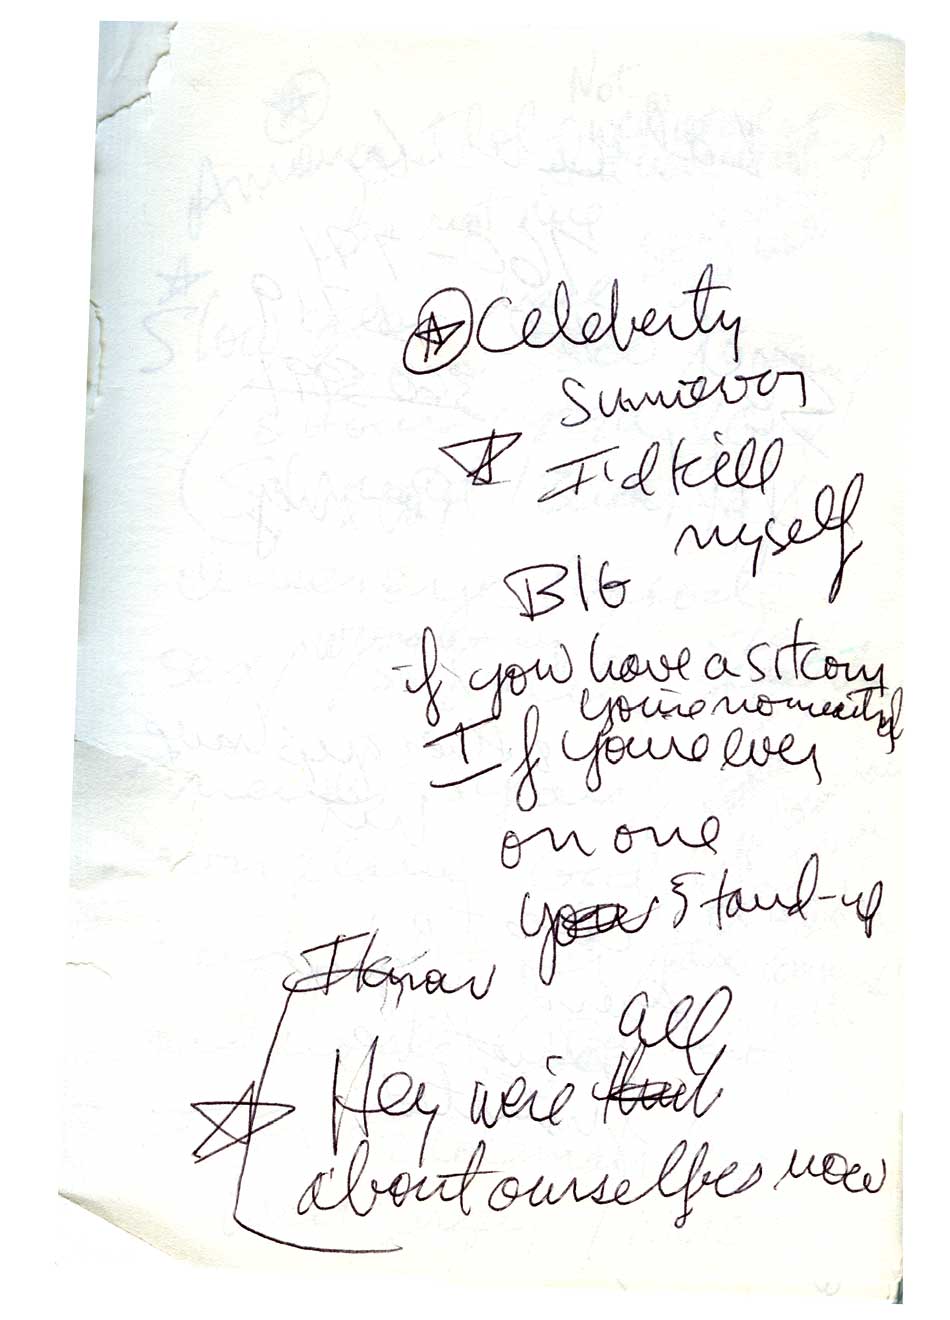 Celeberty
Survivor
I'd kill
myself
BIG
if you have a sitcom
you're no
If you're ever
on one
Stand-up
I know
all
Hey we're
about ourselfves now